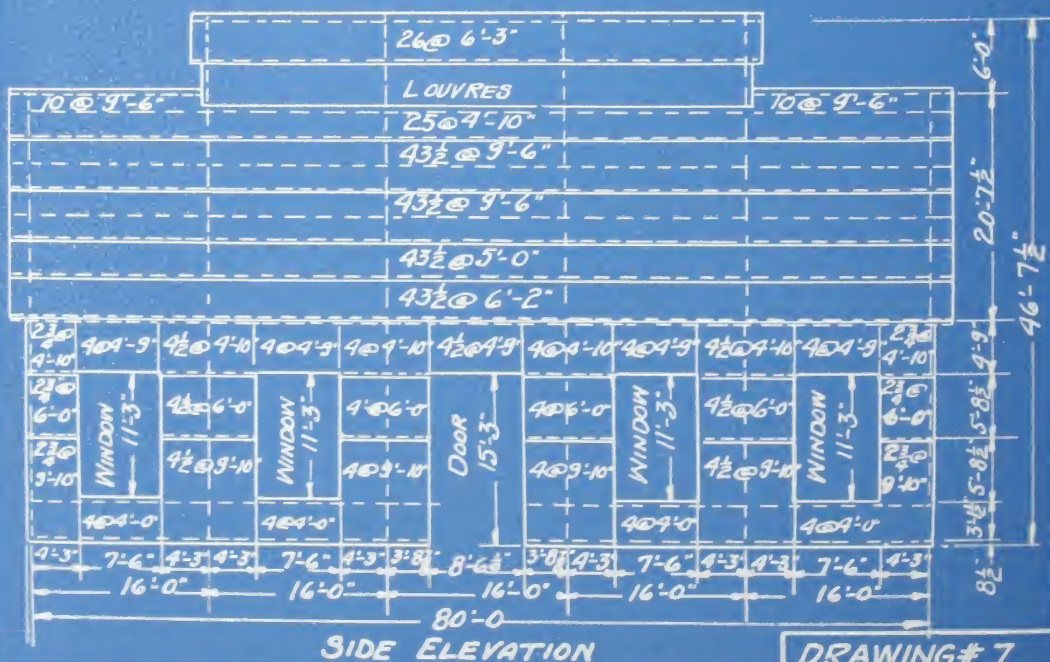 26@ 6'-3"
LOUVRES
10 @ 9'-6" 10 @ 9'-6"
25@ 4'-10"
43½ @ 9'-6"
43½ @ 9'-6"
43½ @ 5'-0"
43½ @ 6'-2"
2¾@ 4'-10" 4@4'-9" 4½@4'-10" 4@4'-9" 4@4'-10" 4½@4'-9" 4@4'-10" 4@4'-9" 4½@4'-10" 4@4'-9" 2¾@ 4'-10"
2¾@ 6'-0" WINDOW 11'-3" 4½@6'-0" WINDOW 11'-3" 4@6'-0" DOOR 15'-3" 4@6'-0" WINDOW 11'-3" 4½@6'-0" WINDOW 11'-3" 2¾@ 6'-0"
2¾@ 9'-10" 4½@9'-10" 4@9'-10" 4@9'-10" 4½@9'-10" 2¾@ 9'-10"
4@4'-0" 4@4'-0" 4@4'-0" 4@4'-0"
4'-3" 7'-6" 4'-3" 4'-3" 7'-6" 4'-3" 8'-6½" 4'-3" 7'-6" 4'-3" 4'-3" 7'-6" 4'-3"
16'-0" 16'-0" 16'-0" 16'-0"
80'-0
SIDE ELEVATION
6'-0"
20'-7½"
46'-7½"
4'-9"
5'-8½"
5'-8½"
8½"
DRAWING# 7